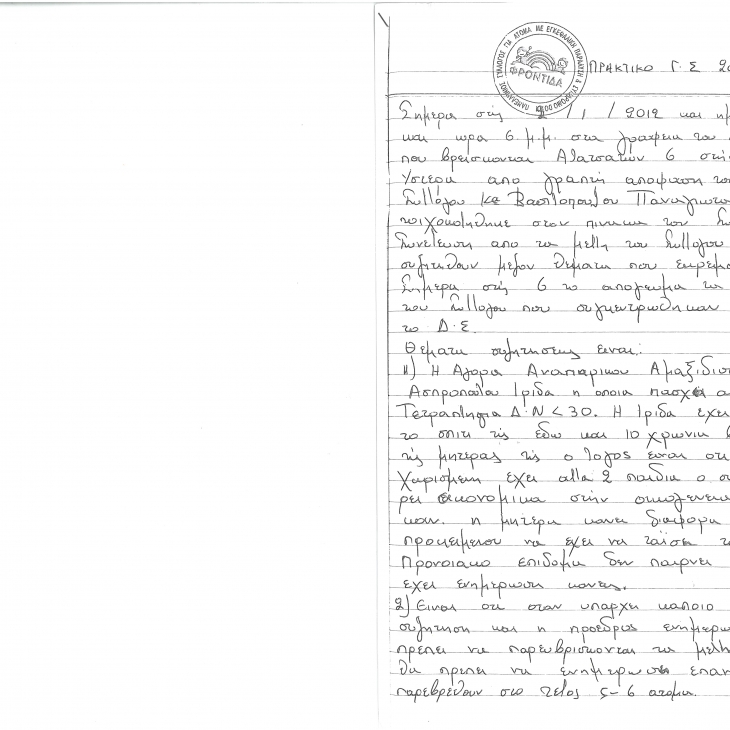 ΠΑΝΕΛΛΗΝΙΟΣ ΣΥΛΛΟΓΟΣ ΓΙΑ ΑΤΟΜΑ ΜΕ ΕΓΚΕΦΑΛΙΚΗ ΠΑΡΑΛΥΣΗ & ΣΥΝΔΡΟΜΟ DOWN
ΦΡΟΝΤΙΔΑ
ΠΡΑΚΤΙΚΟ Γ.Σ 20
Σημερα στις /1/2012 και
και ωρα 6 μ.μ. στα γραφεια του
που βρεισκονται 6 στην
Υστερα απο γραπτη αποφαση το
Συλλόγου κα Βασιλοπουλου Παναγιωτο
τοιχοκοληθηκε στον πινακα του Συ
Συνελευση απο τα μελη του Συλλογου
συζητηθουν μεζον θεματα που εκρεμο
Σημερα στις 6 το απογευμα τα
του Συλλογου που συγκεντρωθηκαν
το Δ.Σ.
Θεματα συζητησεης ειναι:
1) Η Αγορα Αναπηρικου Αμαξιδιου
Ασπροπουλου Ιριδα η οποια πασχει α
Τετραπληγια Δ.Ν < 30. Η Ιριδα εχει
το σπιτι της εδω και 10 χρωνια
της μητερας της ο λογος ειναι οτι
Χωρισμενη εχει αλλα 2 παιδια ο συ
ρει οικονομικα στην οικογενεια
καν. η μητερα κανει διαφορα
προκειμενου να εχει να ταϊσει τ
Προνοιακο επιδομα δεν παιρνει
εχει ενημερωση κανεις.
2) Ειναι οτι οταν υπαρχει καποιο
συζητηση και η προεδρος ενημερω
πρεπει να παρευβρισκονται τα μελη
θα πρεπει να ενημερωση επαν
παρεβρεθουν στο τελος 5-6 ατομα.